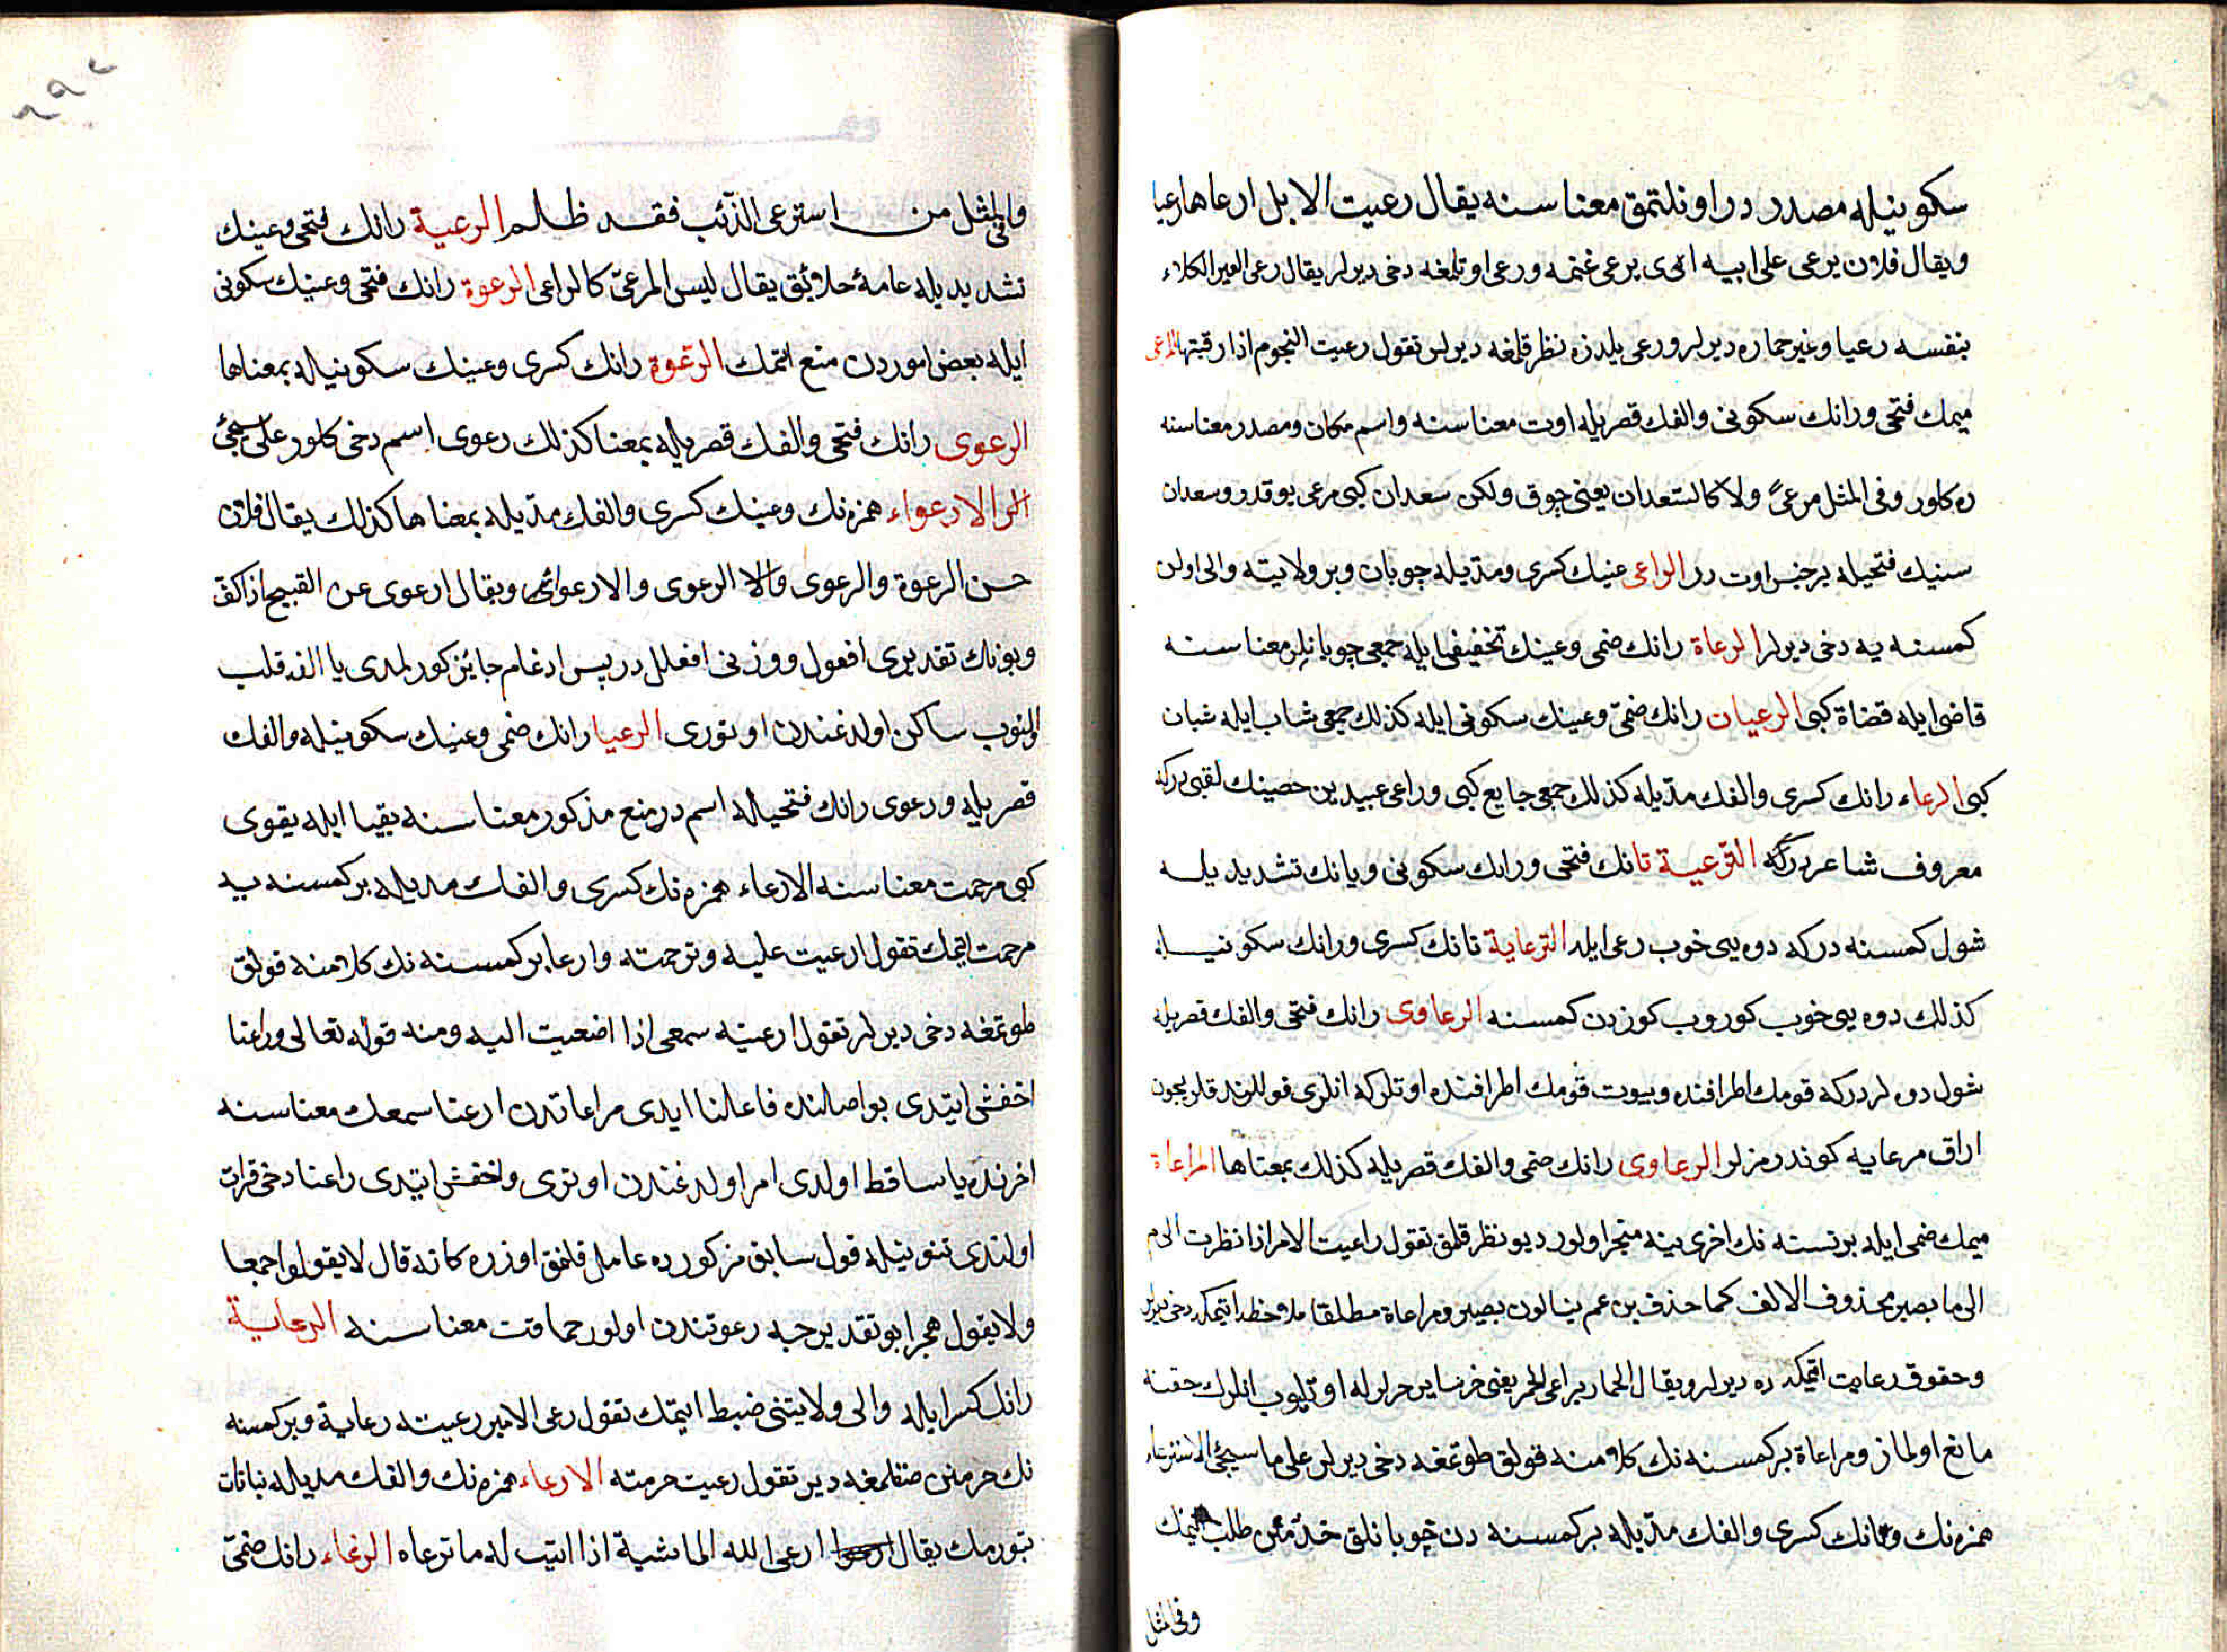 سكونيله مصدردر اوتلتمق معناسنه يقال رعيت الابل ارعاها رعيا
ويقال فلان يرعى على ابيه اى يرعى غنمه ورعى اوتلمغه دخى ديرلر يقال رعى البعير الكلاء
بنفسه رعيا وغير حماره ديرلر ورعى يلدزه نظر قلمغه ديرلر تقول رعيت النجوم اذا رقبتها المرعى
ميمك فتحى ورانك سكونى والفك قصريله اوت معناسنه واسم مكان ومصدر معناسنه
ده كلور وفى المثل مرعىً ولا كالسعدان يعنى چوق ولكن سعدان كبى مرعى يوقدر وسعدان
سنيك فتحيله بر جنس اوت در الراعى عينك كسرى ومديله چوبان وبر ولايته والى اولن
كمسنه يه دخى ديرلر الرعاة رانك ضمى وعينك تخفيفى ايله جمعى چوبانلر معناسنه
قاضى ايله قضاة كبى الرعيان رانك ضمى وعينك سكونى ايله كذلك جمعى شاب ايله شبان
كبى الرعاء رانك كسرى والفك مديله كذلك جمعى جايع كبى وراعى عبيد بن حصينك لقبى دركه
معروف شاعر دركه الترعية تانك فتحى ورانك سكونى ويانك تشديديله
شول كمسنه دركه دوه يى خوب رعى ايله الترعاية تانك كسرى ورانك سكونيله
كذلك دوه يى خوب كوروب كوزدن كمسنه الرعاوى رانك فتحى والفك قصريله
شول دوه لردركه قومك اطرافنده وبيوت قومك اطرافنده اوتلركه انلرى قوللنورلر يچون
اراق مرعايه كوندرمزلر الرعاوى رانك ضمى والفك قصريله كذلك بمعناها المراعاة
ميمك ضمى ايله بر نسنه نك اخرى ينه منجر اولور ديو نظر قلمق تقول راعيت الامر اذا نظرت الى م
الى ما يصير محذوف الالف كما حذف من عم يتسالون يصير ومراعاة مطلقا ملاحظه ايتمكه دخى ديرلر
وحقوق رعايت اتمكه ده ديرلر ويقال الحمار يراعى الحمر يعنى خر سائر خرلرله اوتليوب انلرك حقنه
مانع اولماز ومراعاة بر كمسنه نك كلامنه قولق طوتمغه دخى ديرلر على ما سيجئ الاسترعاء
همزه نك وتانك كسرى والفك مديله بر كمسنه دن چوبانلق خدمتن طلب ايتمك
وفى المثل
وفى المثل من استرعى الذئب فقد ظلم الرعية رانك فتحى وعينك
تشديديله عامهٔ خلائق يقال ليس المرعىّ كالراعى الرعوة رانك فتحى وعينك سكونى
ايله بعض اموردن منع اتمك الرعوة رانك كسرى وعينك سكونيله بمعناها
الرعوى رانك فتحى والفك قصريله بمعنا كذلك رعوى اسم دخى كلور على ما سيجئ
الارعواء همزه نك وعينك كسرى والفك مديله بمعناها كذلك يقال فلان
حسن الرعوة والرعوى والرعوى والارعواء ويقال ارعوى عن القبيح اذا كف
وبونك تقديرى افعول ووزنى افعلل در پس ادغام جائز كورلمدى يا الفه قلب
اولنوب ساكن اولدغندن اوتورى الرعيا رانك ضمى وعينك سكونيله والفك
قصريله ورعوى رانك فتحيله اسم در منع مذكور معناسنه بقيا ايله بقوى
كبى مرحمت معناسنه الارعاء همزه نك كسرى والفك مديله بر كمسنه يه
مرحمت ايتمك تقول ارعيت عليه وترحمته وارعا بر كمسنه نك كلامنه قولق
طوتمغه دخى ديرلر تقول ارعيته سمعى اذا اصغيت اليه ومنه قوله تعالى وراعنا
اخفش ايتدى بو اصلنده فاعلنا ايدى مراعاتدن ارعنا سمعك معناسنه
اخرنده يا ساقط اولدى امر اولدغندن اوترى واخفش ايتدى راعنا دخى قرات
اولندى تنوينيله قول سابق مزكورده عامل قلنمق اوزره كانه قال لا يقولوا حمقا
ولا يقول هجرا بو تقديرجه رعونتدن اولور حماقت معناسنه الرعاية
رانك كسرايله والى ولايتنى ضبط ايتمك تقول رعى الامير رعيته رعاية وبر كمسنه
نك حرمتن صقلمغه دير تقول رعيت حرمته الارعاء همزه نك والفك مديله نباتات
بتورمك يقال ارعى الله الماشية اذا انبت لها ما ترعاه الرغاء رانك ضمى